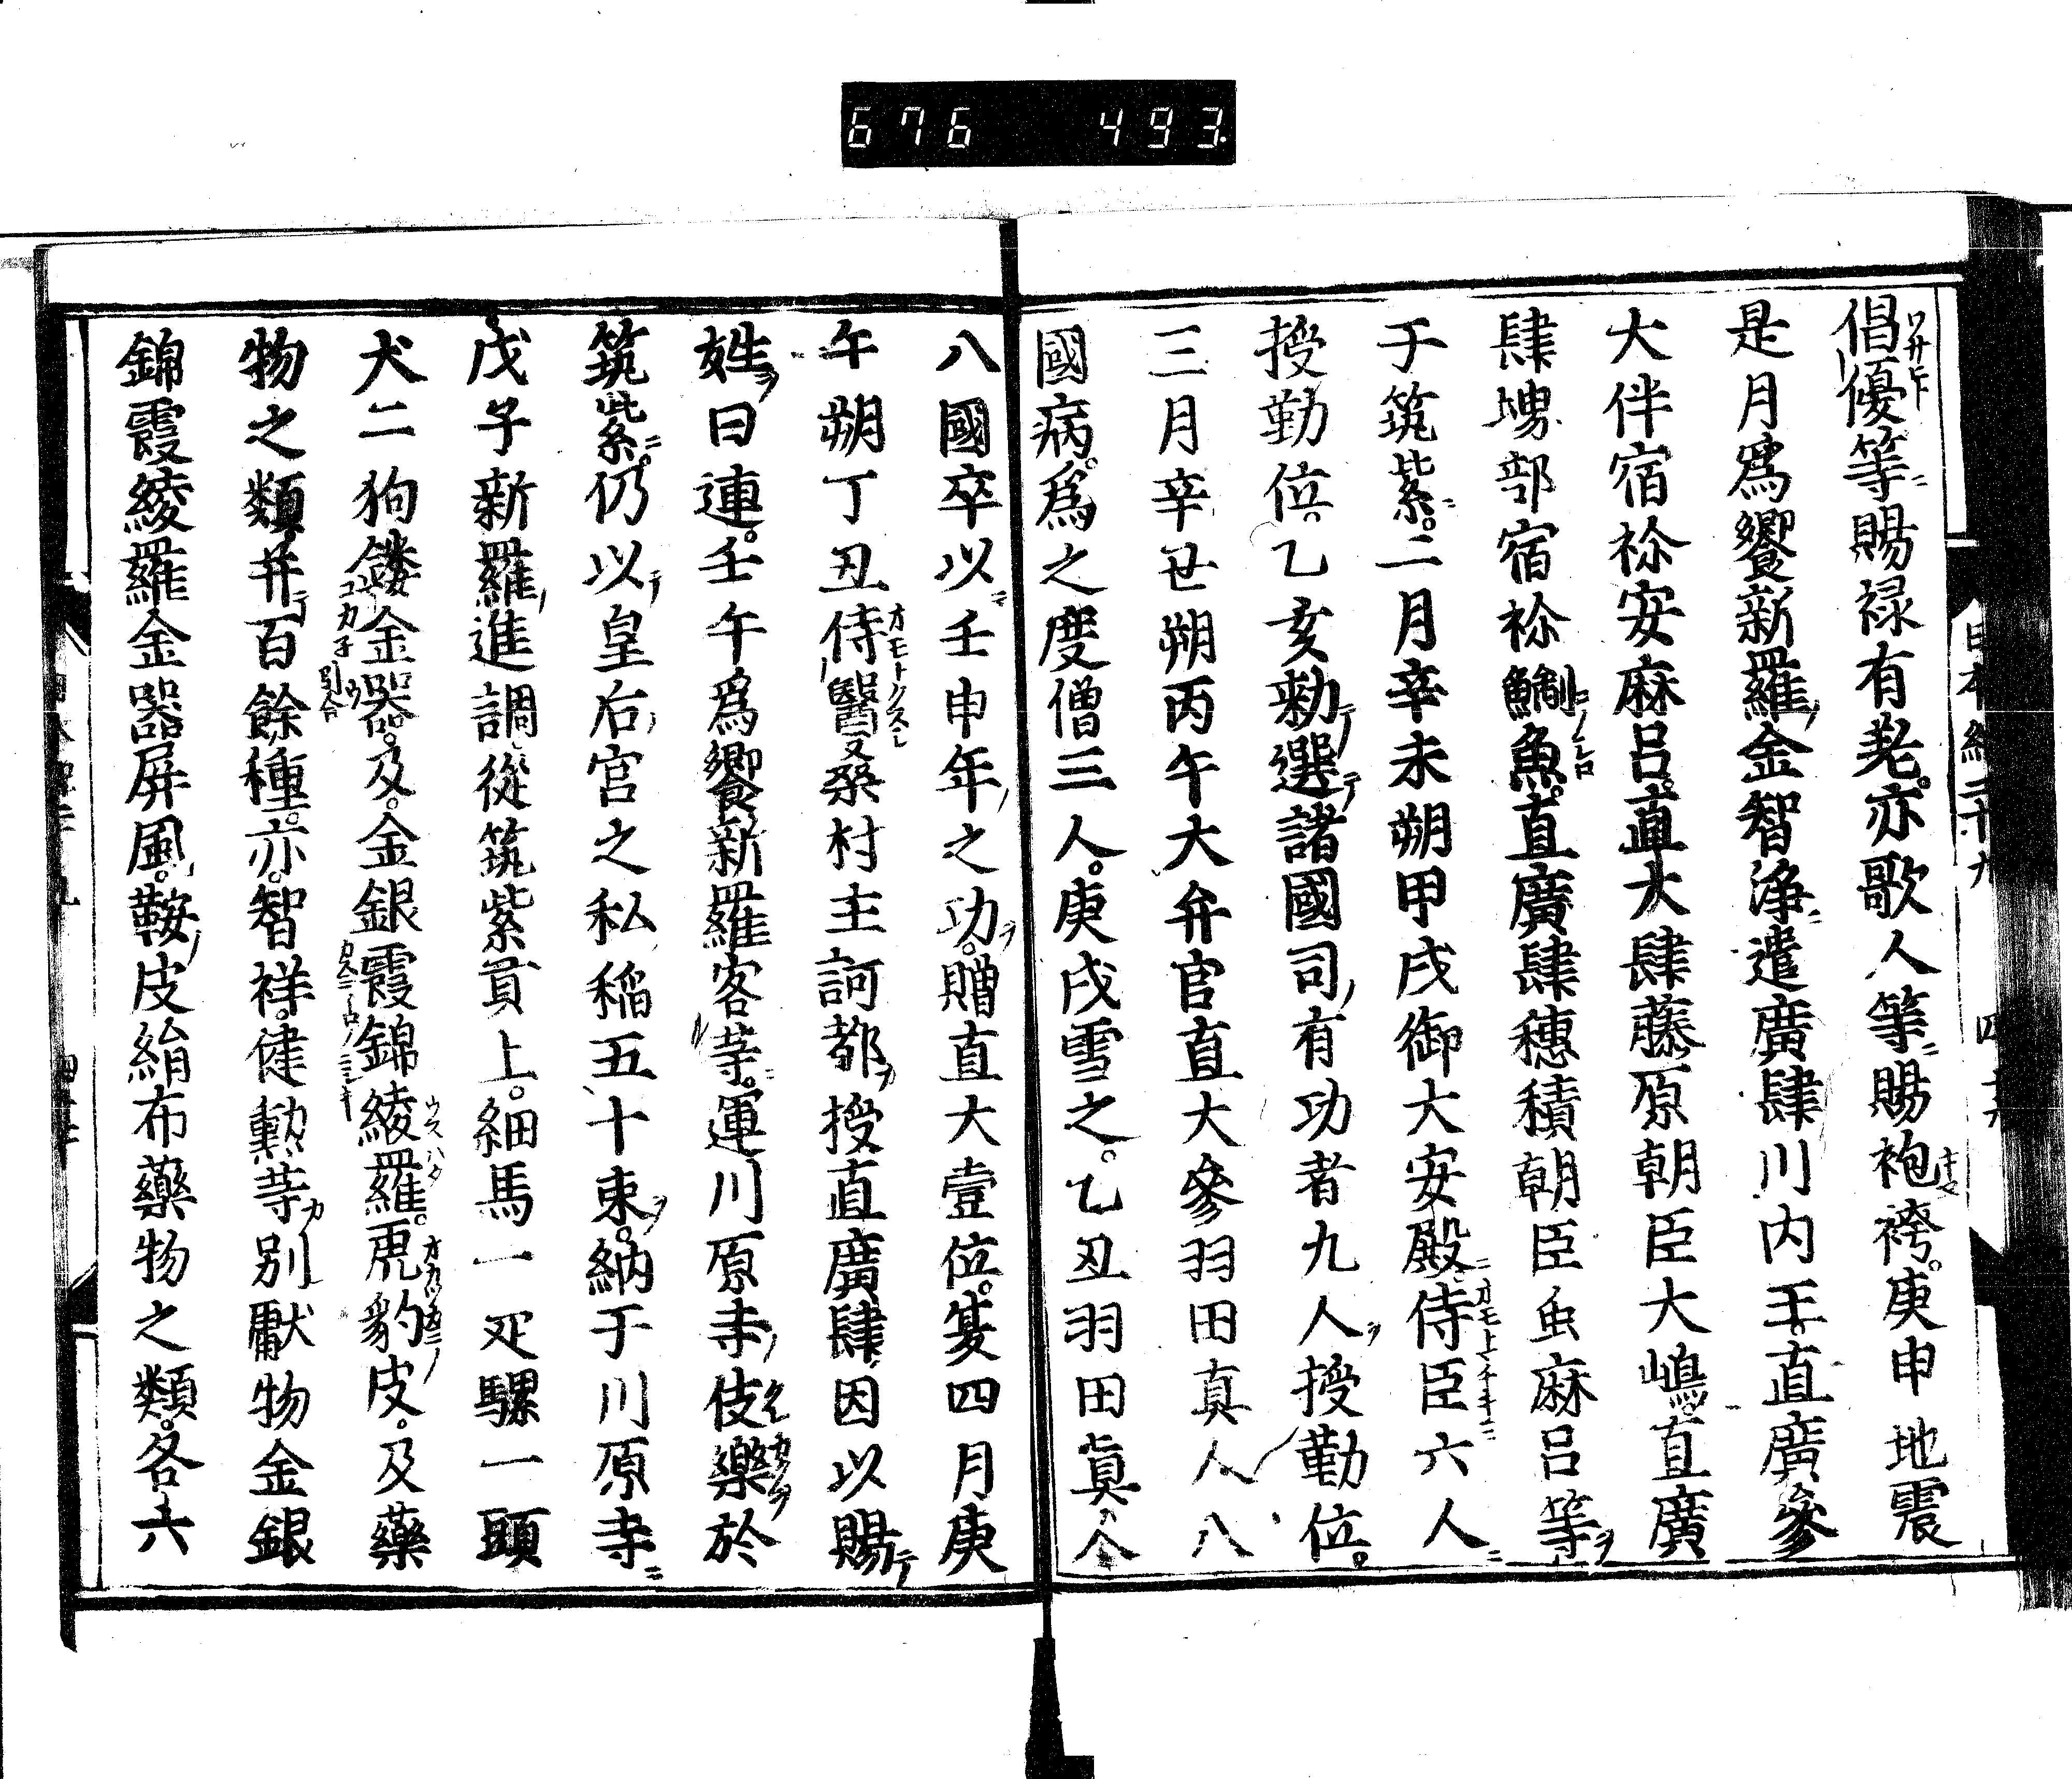 676 493
倡優等賜禄有差亦歌人等賜袍袴庚申地震
是月為饗新羅金智浄遣廣肆川内王直廣參
大伴宿祢安麻呂直大肆藤原朝臣大嶋直廣
肆堺部宿祢鯯魚直廣肆穗積朝臣虫麻呂等
于筑紫二月辛未朔甲戌御大安殿侍臣六人
授勤位乙亥勅選諸國司有功者九人授勤位
三月辛丑朔丙午大弁官直大參羽田真人八
國病為之度僧三人庚戌雪之乙丑羽田真人
八國卒以壬申年之功贈直大壹位夏四月庚
午朔丁丑侍醫桒村主訶都授直廣肆因以賜
姓曰連壬午為饗新羅客等運川原寺伎樂於
筑紫仍以皇后宮之私稲五十束納于川原寺
戊子新羅進調從筑紫貢上細馬一疋騾一頭
犬二狗鏤金器及金銀霞錦綾羅虎豹皮及藥
物之類并百餘種亦智祥健勲等別獻物金銀
錦霞綾羅金器屏風鞍皮絹布藥物之類各六